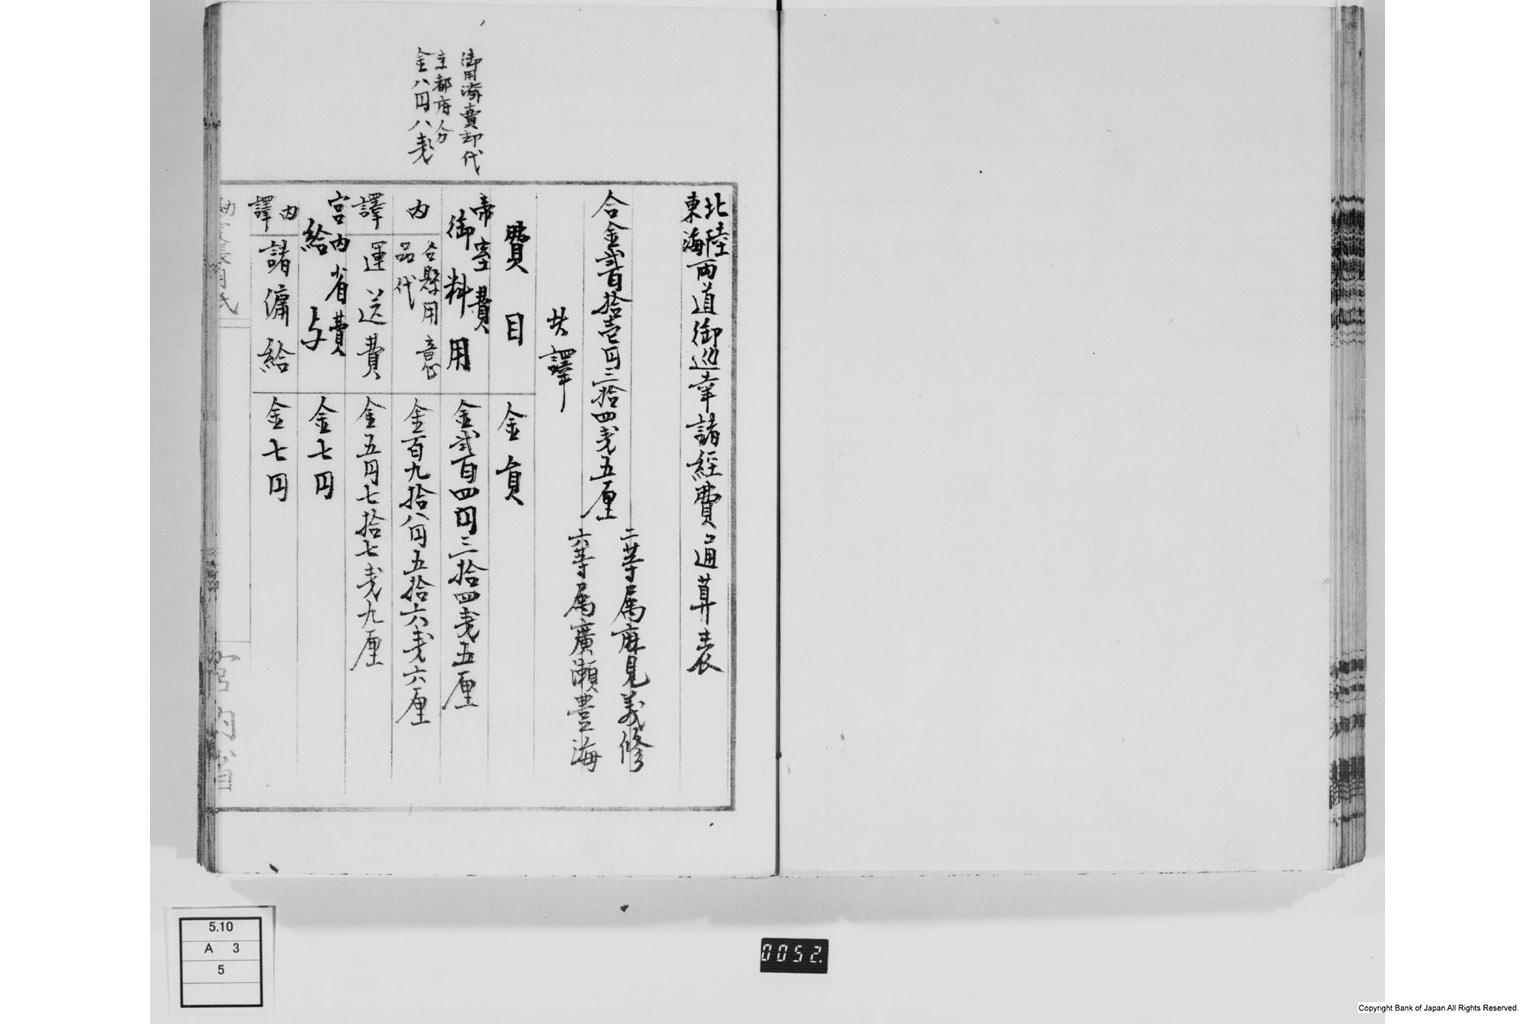 北陸
東海
両道御巡幸諸経費通算表
二等属麻見義修
六等属廣瀬豊海
合金弐百拾壱円三拾四銭五厘
共譯
費目 金員
帝室費
御料用 金弐百四円三拾四銭五厘
内 各縣用意
品代 金百九拾八円五拾六銭六厘
譯 運送費 金五円七拾七銭九厘
宮内省費
給与 金七円
内
譯 諸傭給 金七円
宮内省
御用済費却代
京都府分
金八円八銭
5.10
A 3
5
0052.
Copyright Bank of Japan All Rights Reserved.